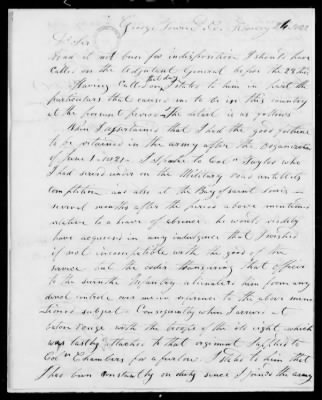 George Town D.C. February 24 1822
Dr Sir
Had it not been for indisposition I should have
called on the Adjutant General before the 22d inst
Having called on that day I stated to him in part the
particulars that caused me to be in this country
at the present period. The detail is as follows
When I ascertained that I had the good fortune
to be retained in the army after the organization
of June 1 - 1821 - I spoke to Col Taylor who
I had served under on the Military road until its
completion and also at the Bay of Saint Louis -
several months after the period above mentioned
relative to a leave of absence. he would readily
have acquiesced in any indulgence that I wished
if not incompatible with the good of the
service but the order transfering that officer
to the seventh Infantry alienated him from any
control over me in reference to the above men
tioned subject - Consequently when I arrived at
baton rouge with the troops of the old eight which
was lastly attached to that regiment I applied to
Col Chambers for a furlow. I stated to him that
I had been constantly on duty since I joined the army